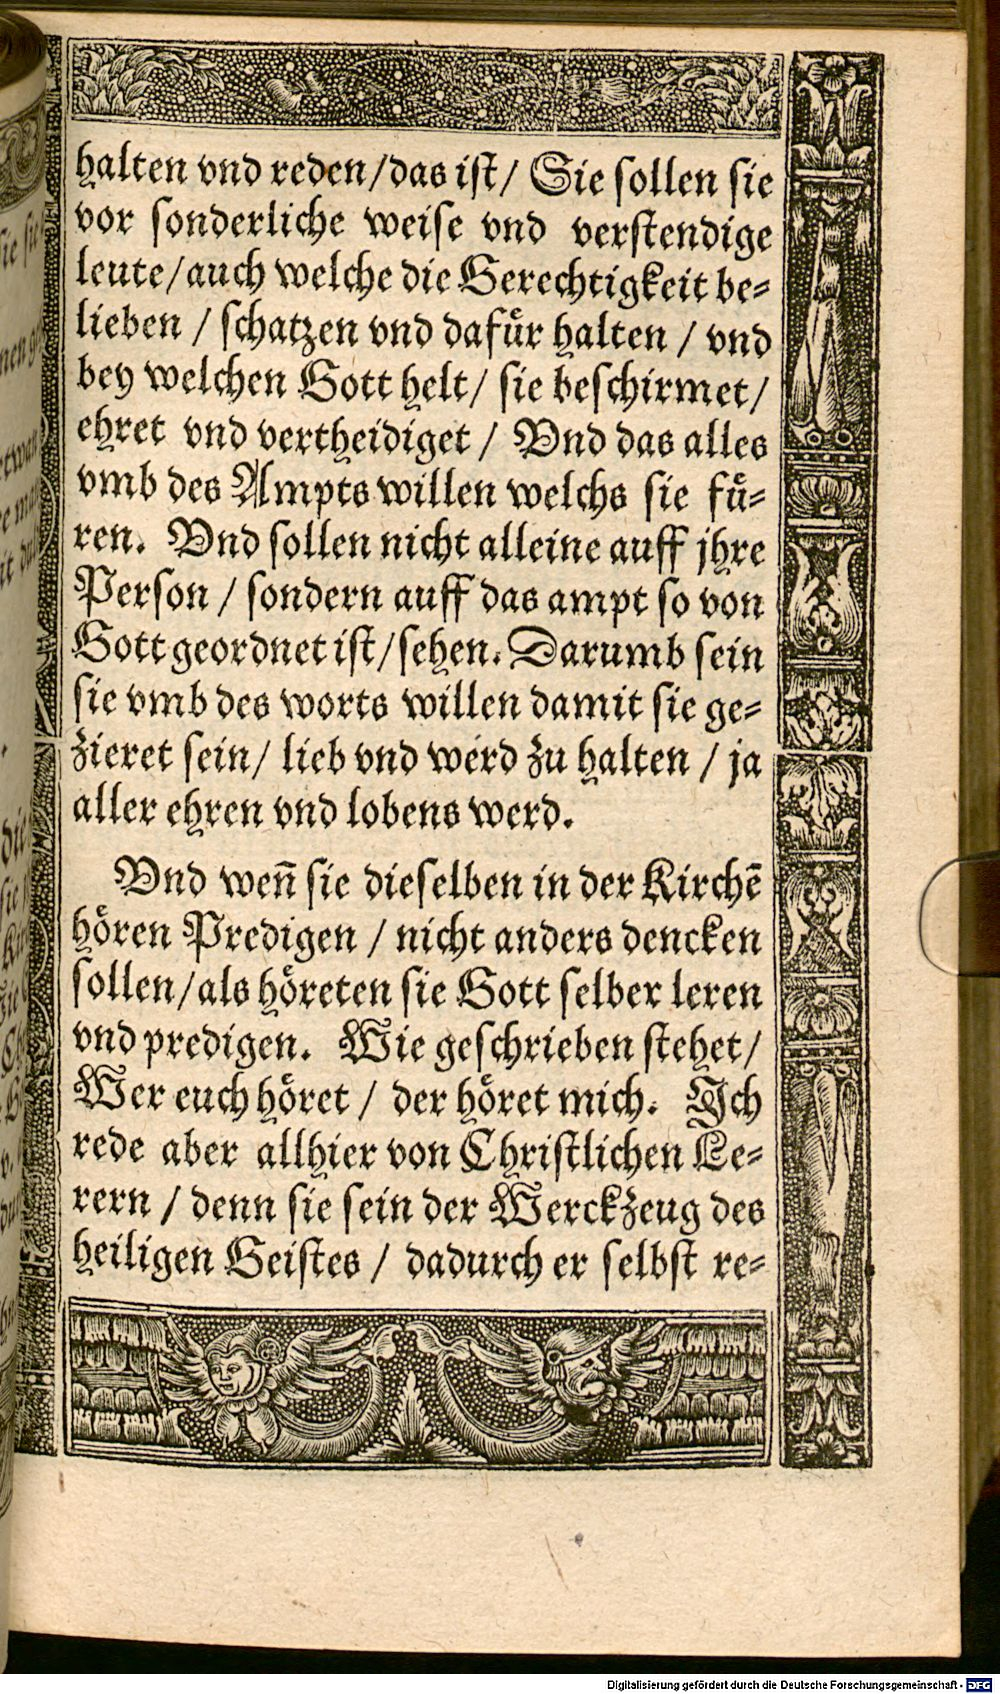 halten vnd reden/das ist/ Sie sollen sie
vor sonderliche weise vnd verstendige
leute/auch welche die Gerechtigkeit be-
lieben / schatzen vnd dafür halten / vnd
bey welchen Gott helt/ sie beschirmet/
ehret vnd vertheidiget / Vnd das alles
vmb des Ampts willen welchs sie fü-
ren. Vnd sollen nicht alleine auff jhre
Person / sondern auff das ampt so von
Gott geordnet ist/sehen. Darumb sein
sie vmb des worts willen damit sie ge-
zieret sein/ lieb vnd werd zu halten / ja
aller ehren vnd lobens werd.
Vnd weñ sie dieselben in der Kirchē
hören Predigen / nicht anders dencken
sollen/als höreten sie Gott selber leren
vnd predigen. Wie geschrieben stehet/
Wer euch höret / der höret mich. Ich
rede aber allhier von Christlichen Le-
rern / denn sie sein der Werckzeug des
heiligen Geistes / dadurch er selbst re-
Digitalisierung gefördert durch die Deutsche Forschungsgemeinschaft - DFG